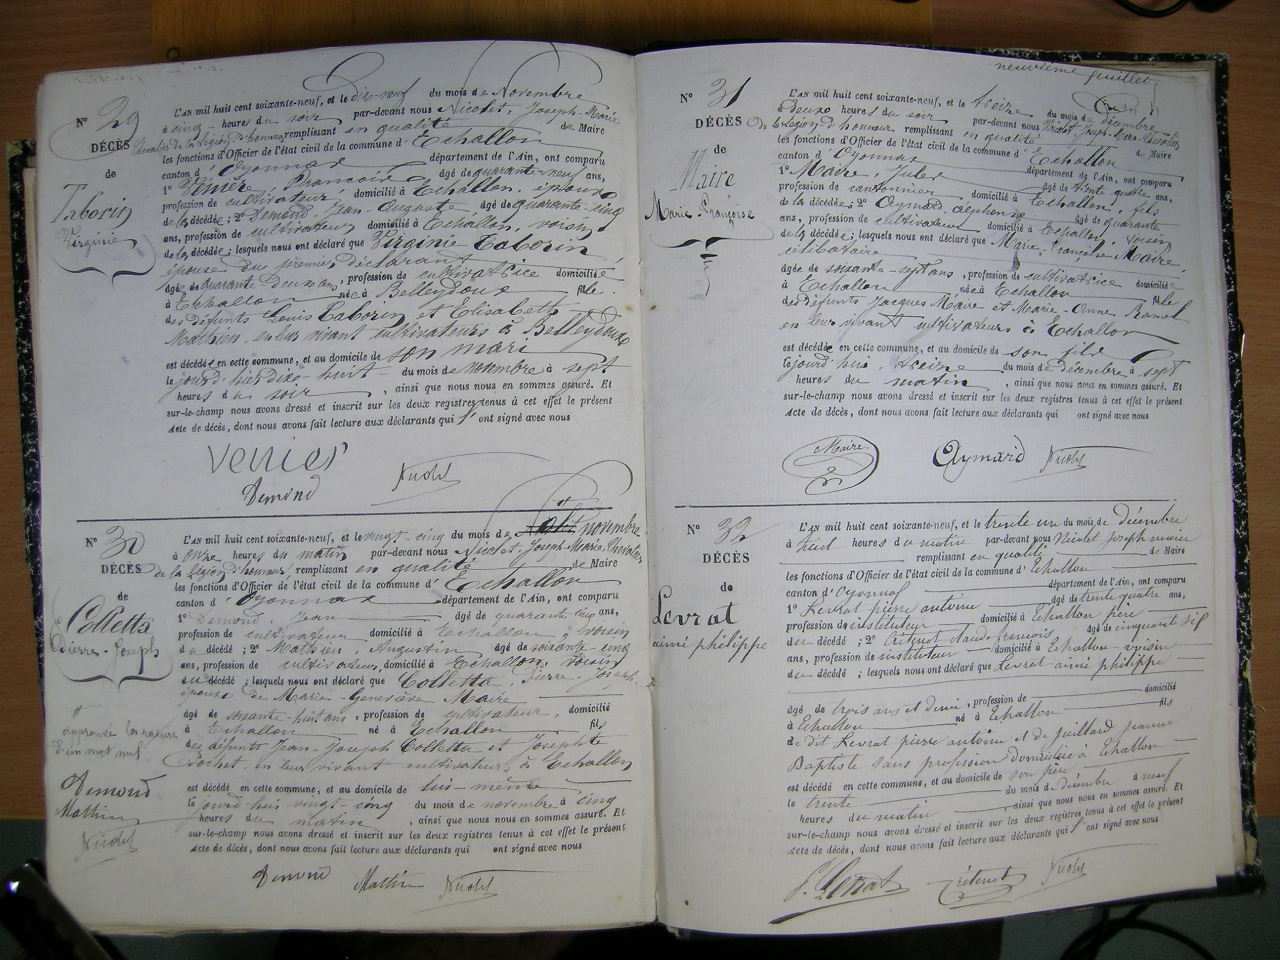 Nº 29
DÉCÈS
de
Taborin
Virginie
L'AN mil huit cent soixante-neuf, et le dix-neuf du mois de Novembre
à cinq heures du soir par-devant nous Nicolet, Joseph-Marie
Chevalier de la légion d'honneur remplissant en qualité de Maire
les fonctions d'Officier de l'état civil de la commune d'Echallon
canton d'Oyonnax département de l'Ain, ont comparu
1º François âgé de quarante-neuf ans,
profession de cultivateur domicilié à Echallon, époux
de la décédée ; 2º Demond, Jean-Auguste âgé de quarante-cinq
ans, profession de cultivateur domicilié à Echallon, voisin
de la décédée ; lesquels nous ont déclaré que Virginie Taborin
épouse du premier déclarant
âgée de quarante deux ans, profession de cultivatrice domiciliée
à Echallon née à Belleydoux fille
des défunts Louis Taborin et Elisabeth
Mathieu en leur vivant cultivateurs à Belleydoux
est décédée en cette commune, et au domicile de son mari
le jourd'hier dix-huit du mois de novembre à sept
heures du soir, ainsi que nous nous en sommes assuré. Et
sur-le-champ nous avons dressé et inscrit sur les deux registres tenus à cet effet le présent
acte de décès, dont nous avons fait lecture aux déclarants qui ont signé avec nous
Venier
Demond Nicolet
Nº 30
DÉCÈS
de
Colletta
Pierre-Joseph
L'AN mil huit cent soixante-neuf, et le vingt-cinq du mois de novembre
à onze heures du matin par-devant nous Nicolet, Joseph-Marie Chevalier
de la légion d'honneur remplissant en qualité de Maire
les fonctions d'Officier de l'état civil de la commune d'Echallon
canton d'Oyonnax département de l'Ain, ont comparu
1º Demond, Jean âgé de quarante cinq ans,
profession de cultivateur domicilié à Echallon, voisin
du décédé ; 2º Mathieu Augustin âgé de soixante-cinq
ans, profession de cultivateur, domicilié à Echallon, voisin
du décédé ; lesquels nous ont déclaré que Colletta, Pierre-Joseph
époux de Marie-Geneviève Maire
âgé de soixante-huit ans, profession de cultivateur, domicilié
à Echallon né à Echallon fils
des défunts Jean-Joseph Colletta et Josephte
Crochet en leur vivant cultivateurs à Echallon
est décédé en cette commune, et au domicile de lui-même
le jourd'hui vingt-cinq du mois de novembre à cinq
heures du matin, ainsi que nous nous en sommes assuré. Et
sur-le-champ nous avons dressé et inscrit sur les deux registres tenus à cet effet le présent
acte de décès, dont nous avons fait lecture aux déclarants qui ont signé avec nous
approuvé la rature
d'un mot nul
Demond
Mathieu
Nicolet
Demond Mathieu Nicolet
neuvième juillet
Nº 31
DÉCÈS
de
Maire
Marie-Françoise
L'AN mil huit cent soixante-neuf, et le treize du mois de décembre
à deux heures du soir par-devant nous Nicolet, Joseph-Marie Chevalier
de la légion d'honneur remplissant en qualité de Maire
les fonctions d'Officier de l'état civil de la commune d'Echallon
canton d'Oyonnax département de l'Ain, ont comparu
1º Maire, Jules âgé de trente quatre ans,
profession de cantonnier domicilié à Echallon, fils
de la décédée ; 2º Aymard alphonse âgé de quarante
ans, profession de cultivateur domicilié à Echallon, voisin
de la décédée ; lesquels nous ont déclaré que Marie-Françoise Maire,
célibataire
âgée de soixante-sept ans, profession de cultivatrice domiciliée
à Echallon née à Echallon fille
des défunts Jacques Maire et Marie-Anne
en leur vivant cultivateurs à Echallon
est décédée en cette commune, et au domicile de son fils
le jourd'hui treize du mois de décembre à sept
heures du matin, ainsi que nous nous en sommes assuré. Et
sur-le-champ nous avons dressé et inscrit sur les deux registres tenus à cet effet le présent
acte de décès, dont nous avons fait lecture aux déclarants qui ont signé avec nous
Maire Aymard Nicolet
Nº 32
DÉCÈS
de
Levrat
aimé philippe
L'AN mil huit cent soixante-neuf, et le trente un du mois de décembre
à huit heures du matin par-devant nous Nicolet joseph marie
remplissant en qualité de Maire
les fonctions d'Officier de l'état civil de la commune d'Echallon
canton d'Oyonnax département de l'Ain, ont comparu
1º Levrat pierre antoine âgé de trente quatre ans,
profession d'instituteur domicilié à Echallon père
du décédé ; 2º claude françois âgé de cinquante six
ans, profession de instituteur domicilié à Echallon voisin
du décédé ; lesquels nous ont déclaré que Levrat aimé philippe
âgé de trois ans et demi, profession de domicilié
à Echallon né à Echallon fils
de dit Levrat pierre antoine et de juillard jeanne
Baptiste sans profession domiciliés à Echallon
est décédé en cette commune, et au domicile de son père
le trente du mois de décembre à neuf
heures du matin, ainsi que nous nous en sommes assuré. Et
sur-le-champ nous avons dressé et inscrit sur les deux registres tenus à cet effet le présent
acte de décès, dont nous avons fait lecture aux déclarants qui ont signé avec nous
P. Levrat Nicolet